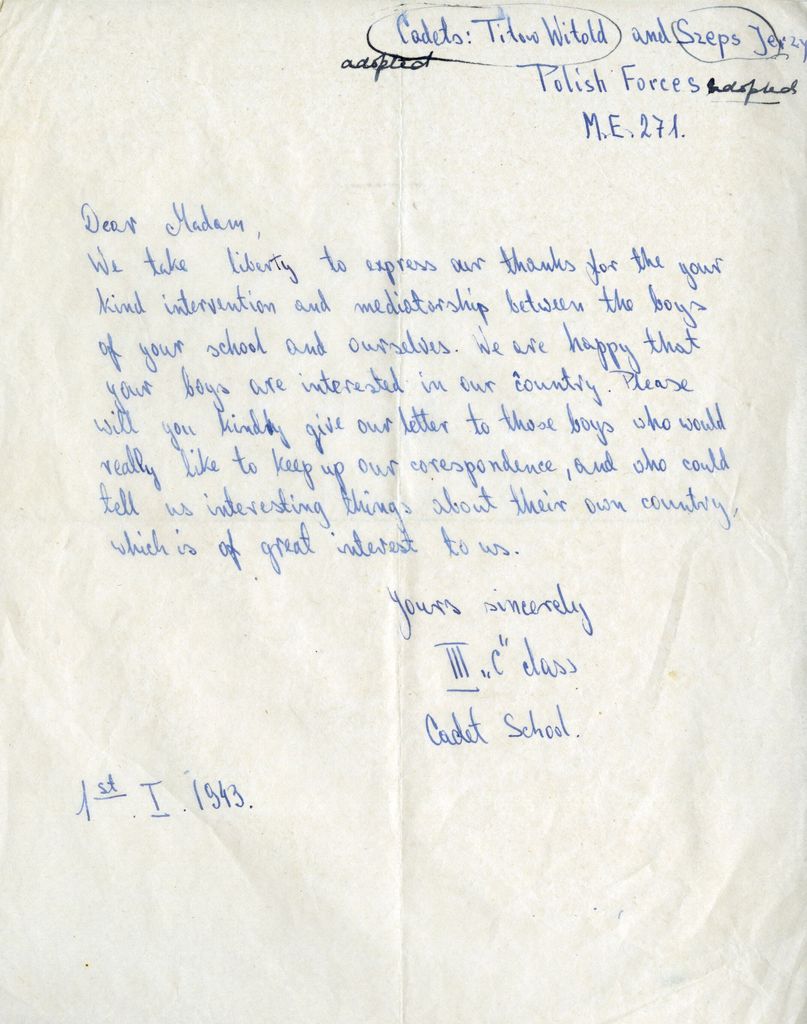 Cadets: Titow Witold and Szeps Jerzy
adopted
Polish Forces adopted
M.E. 271.
Dear Madam,
We take liberty to express our thanks for the your
kind intervention and mediatorship between the boys
of your school and ourselves. We are happy that
your boys are interested in our country. Please
will you kindly give our letter to those boys who would
really like to keep up our corespondence, and who could
tell us interesting things about their own country,
which is of great interest to us.
Yours sincerely
III „C" class
Cadet School.
1st. I. 1943.